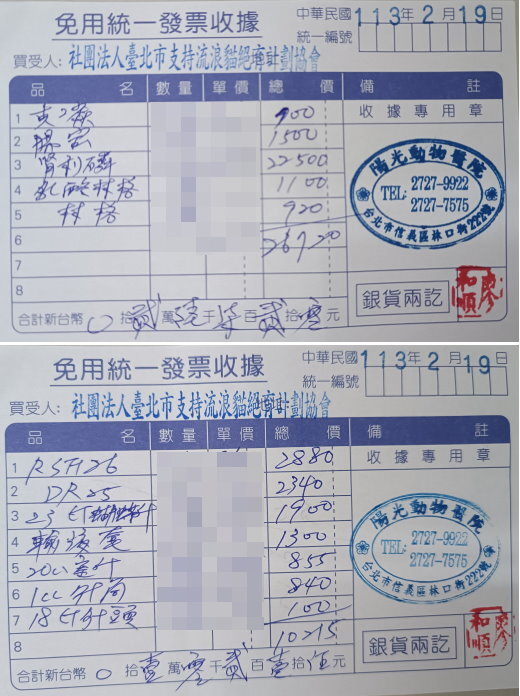 免用統一發票收據
中華民國113年2月19日
統一編號
買受人:社團法人臺北市支持流浪貓絕育計劃協會
品名 數量 單價 總價 備註
收據專用章
1 900
2 1500
3 腎利磷 22500
4 1100
5 920
6 26920
7
8
陽光動物醫院
TEL: 2727-9922
2727-7575
台北市信義區林口街222號
銀貨兩訖
廖和順
合計新台幣 0 拾 貳 萬 陸 千 百 貳 拾 零 元
免用統一發票收據
中華民國113年2月19日
統一編號
買受人:社團法人臺北市支持流浪貓絕育計劃協會
品名 數量 單價 總價 備註
收據專用章
1 RSH26 2880
2 DR25 2340
3 23 1900
4 1300
5 20cc 855
6 1cc 針筒 840
7 18針頭 100
8 10215
陽光動物醫院
TEL: 2727-9922
2727-7575
台北市信義區林口街222號
銀貨兩訖
廖和順
合計新台幣 0 拾 壹 萬 零 貳 百 壹 拾 伍 元